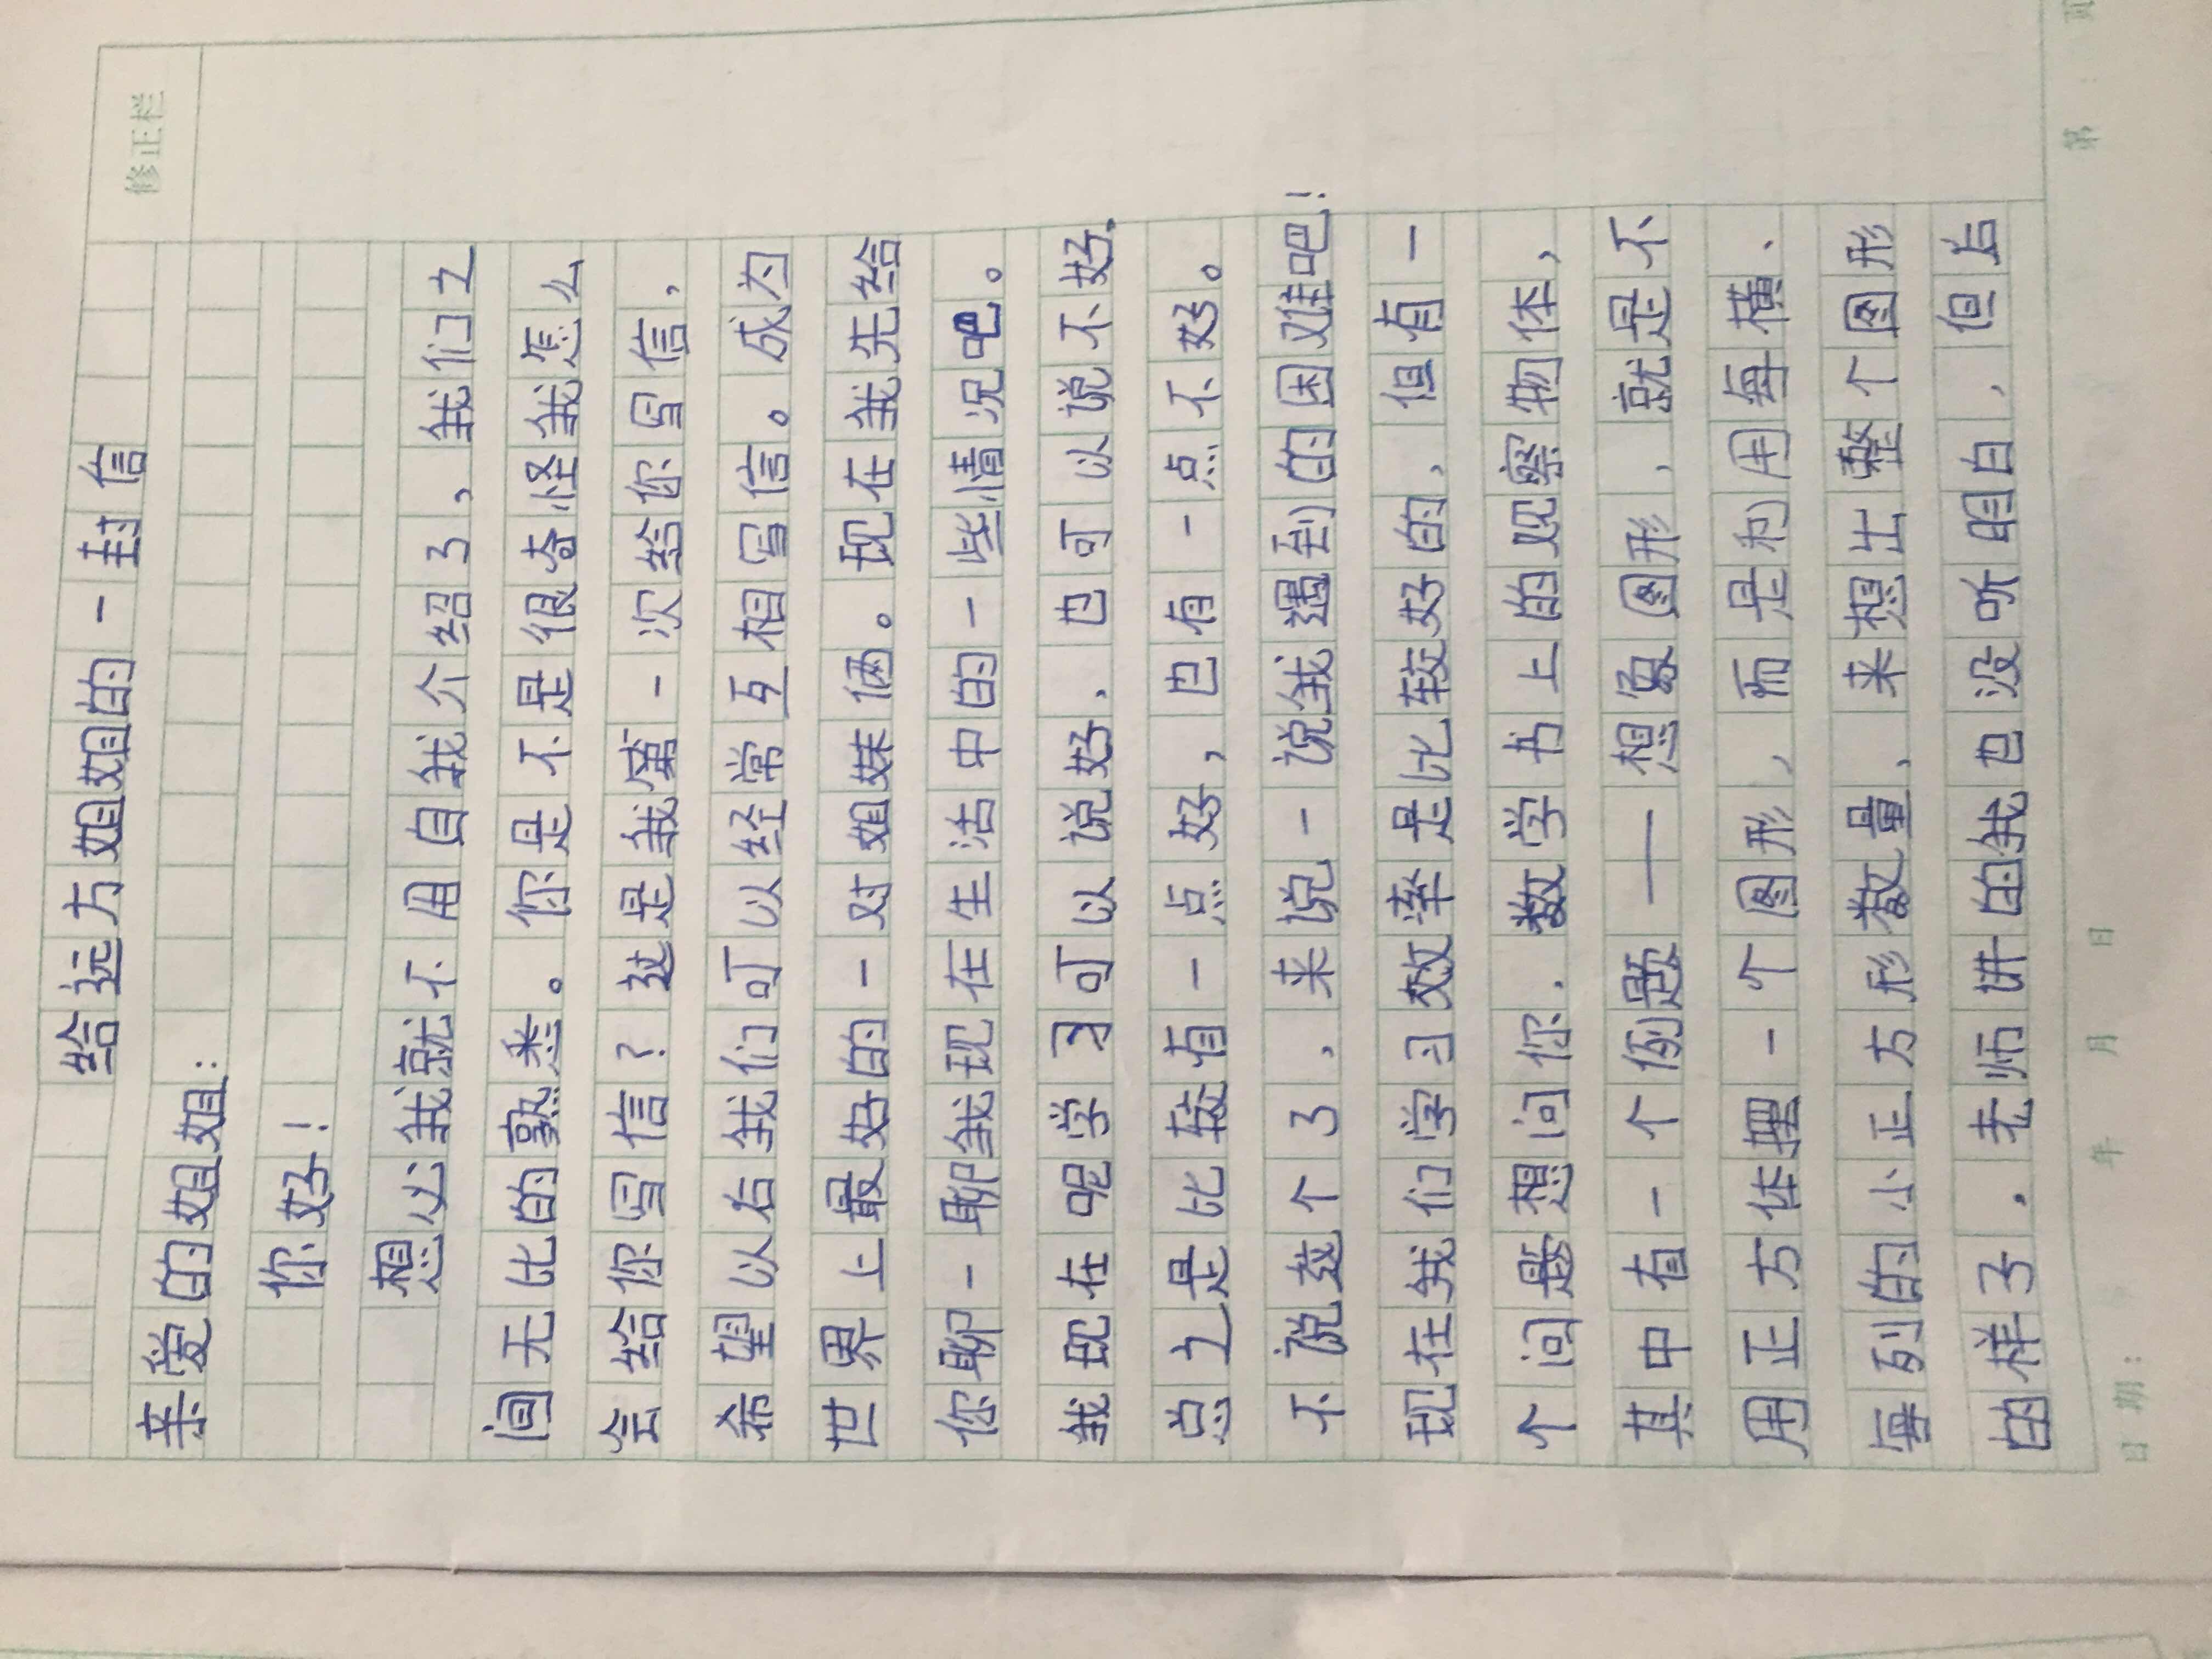 修正栏
给远方姐姐的一封信
亲爱的姐姐：
你好！
想必我就不用自我介绍了，我们之
间无比的熟悉。你是不是很奇怪我怎么
会给你写信？这是我第一次给你写信，
希望以后我们可以经常互相写信。成为
世界上最好的一对姐妹俩。现在我先给
你聊一聊我现在生活中的一些情况吧。
我现在呢学习可以说好，也可以说不好，
总之是比较有一点好，也有一点不好。
不说这个了，来说一说我遇到的困难吧！
现在我们学习效率是比较好的，但有一
个问题想问你，数学书上的观察物体，
其中有一个例题——想象图形，就是不
用正方体摆一个图形，而是利用每横、
每列的小正方形数量，来想出整个图形
的样子，老师讲的我也没听明白，但后
日期： 年 月 日
第 页